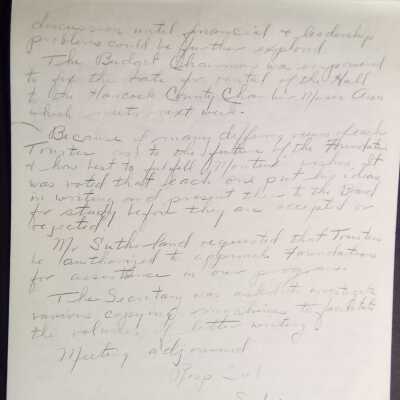 discussion until financial & leadership
problems could be further explored
The Budget Chairman was empowered
to fix the rate for rental of the Hall
to the Hancock County Chamber Music Assn
which meets next week.
Because of many differing views of each
Trustee as to the future of the Foundation
& how best to fulfill Monteux' wishes. It
was voted that each one put his ideas
in writing and present them to the Board
for study before they are accepted or
rejected
Mr Sutherland requested that Trustees
be authorized to approach Foundations
for assistance in our program
The Secretary was asked to investigate
various copying machines to facilitate
the volume of letter writing.
Meeting adjourned
Resp Sub